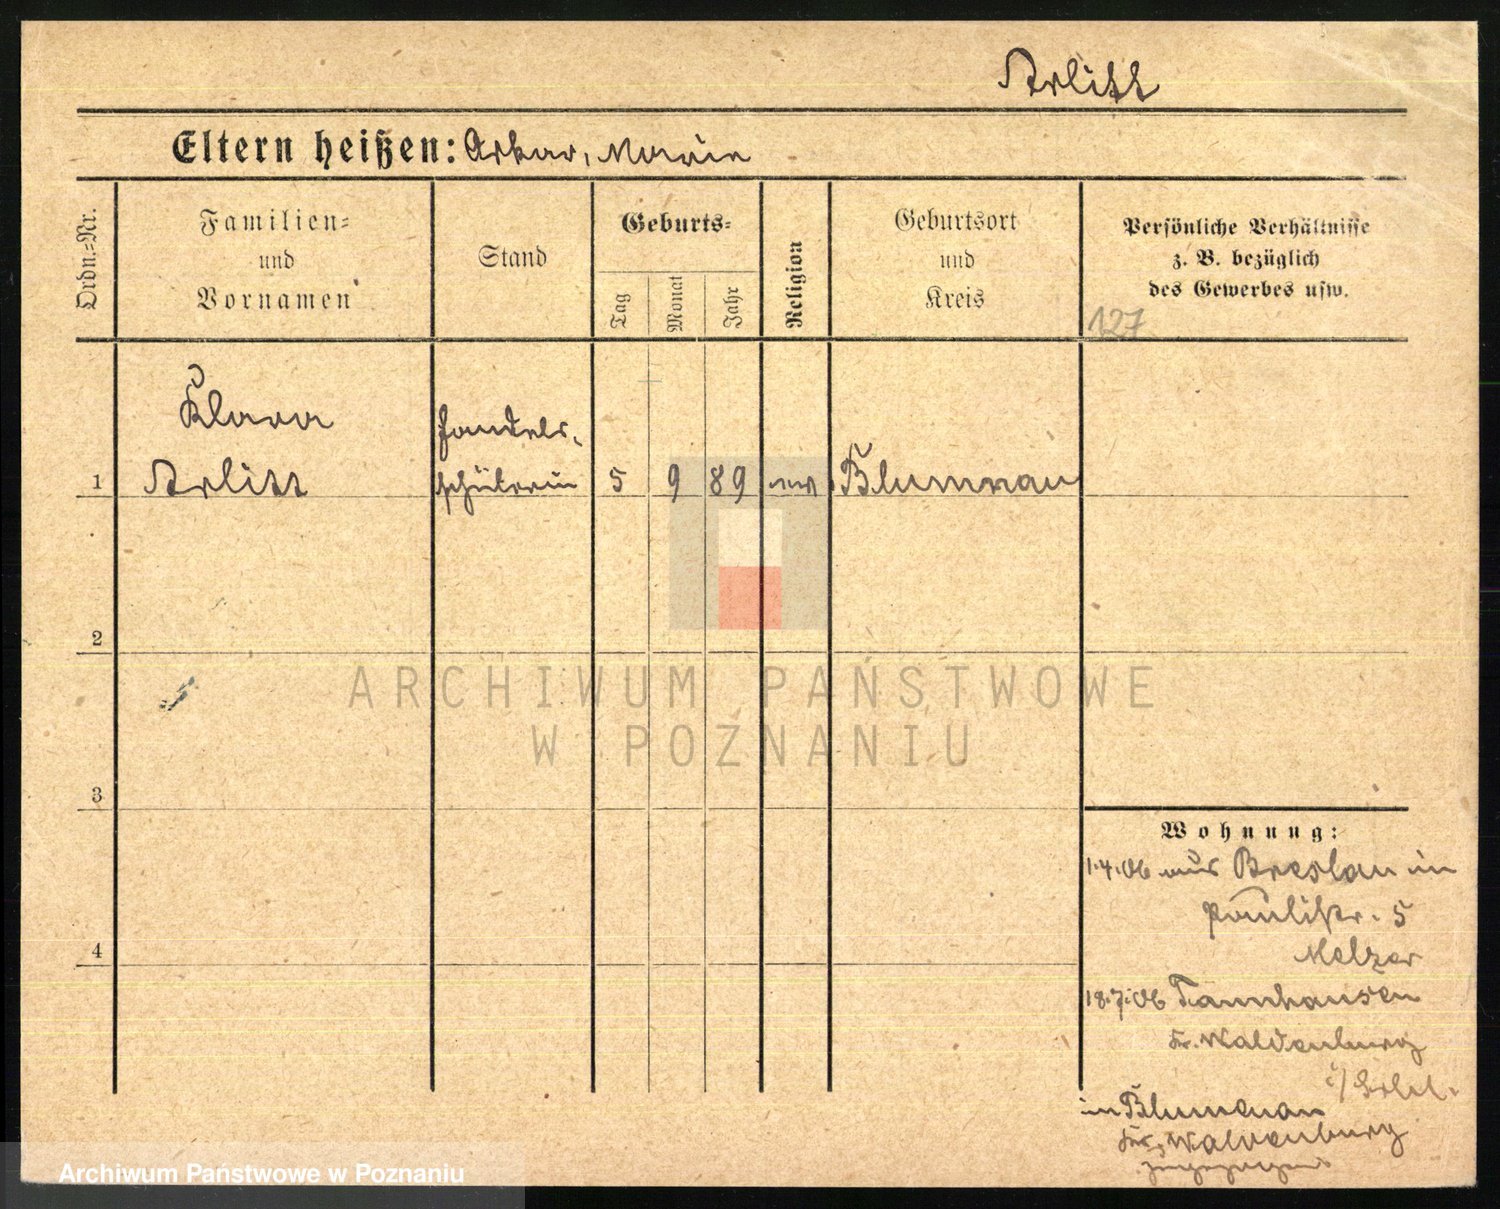 Arlitt
Eltern heißen: Oskar, Marie
Ordn.=Nr.
Familien=
und
Vornamen
Stand
Geburts=
Tag
Monat
Jahr
Religion
Geburtsort
und
Kreis
Persönliche Verhältnisse
z. B. bezüglich
des Gewerbes usw.
127
Klara
Arlitt
Handels-
schülerin
1
5
9
89
Blumenau
2
3
4
Wohnung:
1.4.06 aus Breslau in
Paulistr. 5
Melzer
18.7.06 Tannhausen
Kr. Waldenburg
i/Schl.
in Blumenau
Kr. Waldenburg
ARCHIWUM PAŃSTWOWE
W POZNANIU
Archiwum Państwowe w Poznaniu